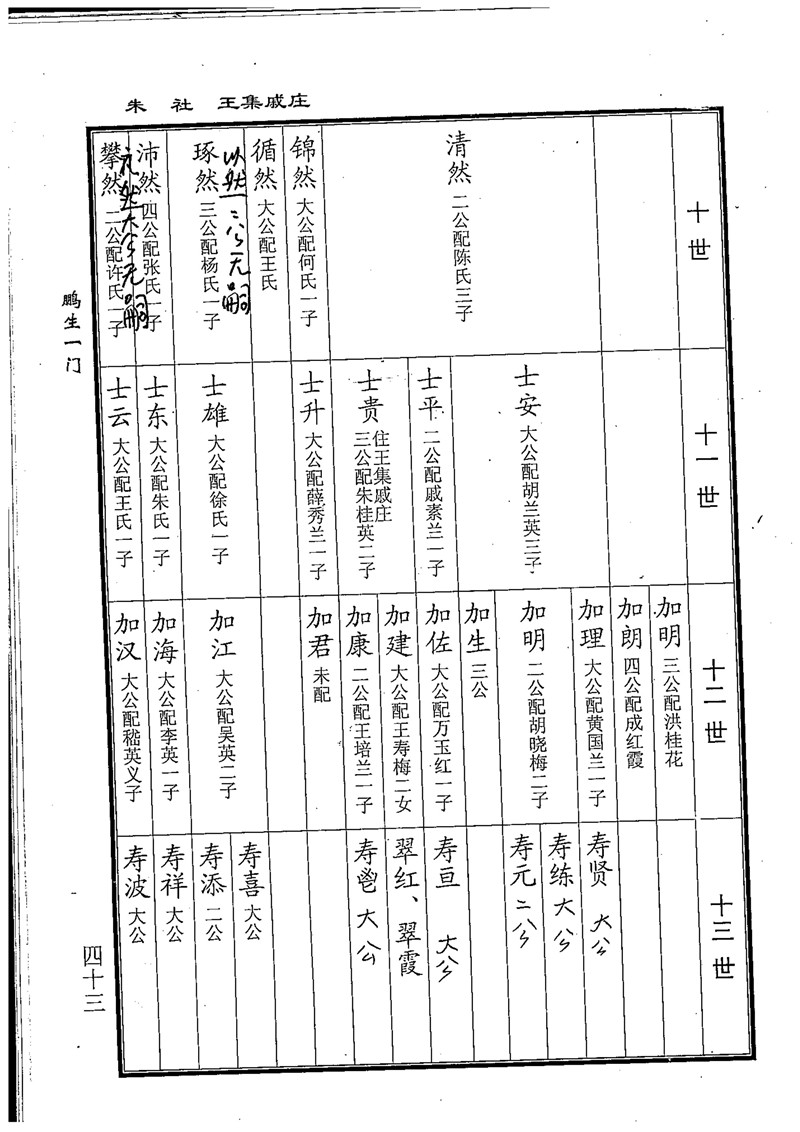 朱 社 王集戚庄
十世
清然 二公配陈氏三子
锦然 大公配何氏一子
循然 大公配王氏
以然 二公无嗣
琢然 三公配杨氏一子
沛然 四公配张氏一子
元然 大公无嗣
攀然 二公配许氏一子
十一世
士安 大公配胡兰英三子
士平 二公配戚素兰一子
士贵 住王集戚庄
三公配朱桂英二子
士升 大公配薛秀兰一子
士雄 大公配徐氏一子
士东 大公配朱氏一子
士云 大公配王氏一子
十二世
加明 三公配洪桂花
加朗 四公配成红霞
加理 大公配黄国兰一子
加明 二公配胡晓梅二子
加生 三公
加佐 大公配万玉红一子
加建 大公配王寿梅二女
加康 二公配王培兰一子
加君 未配
加江 大公配吴英二子
加海 大公配李英一子
加汉 大公配嵇英义子
十三世
寿贤 大公
寿练 大公
寿元 二公
寿亘 大公
翠红、翠霞
寿 大公
寿喜 大公
寿添 二公
寿祥 大公
寿波 大公
鹏生一门
四十三